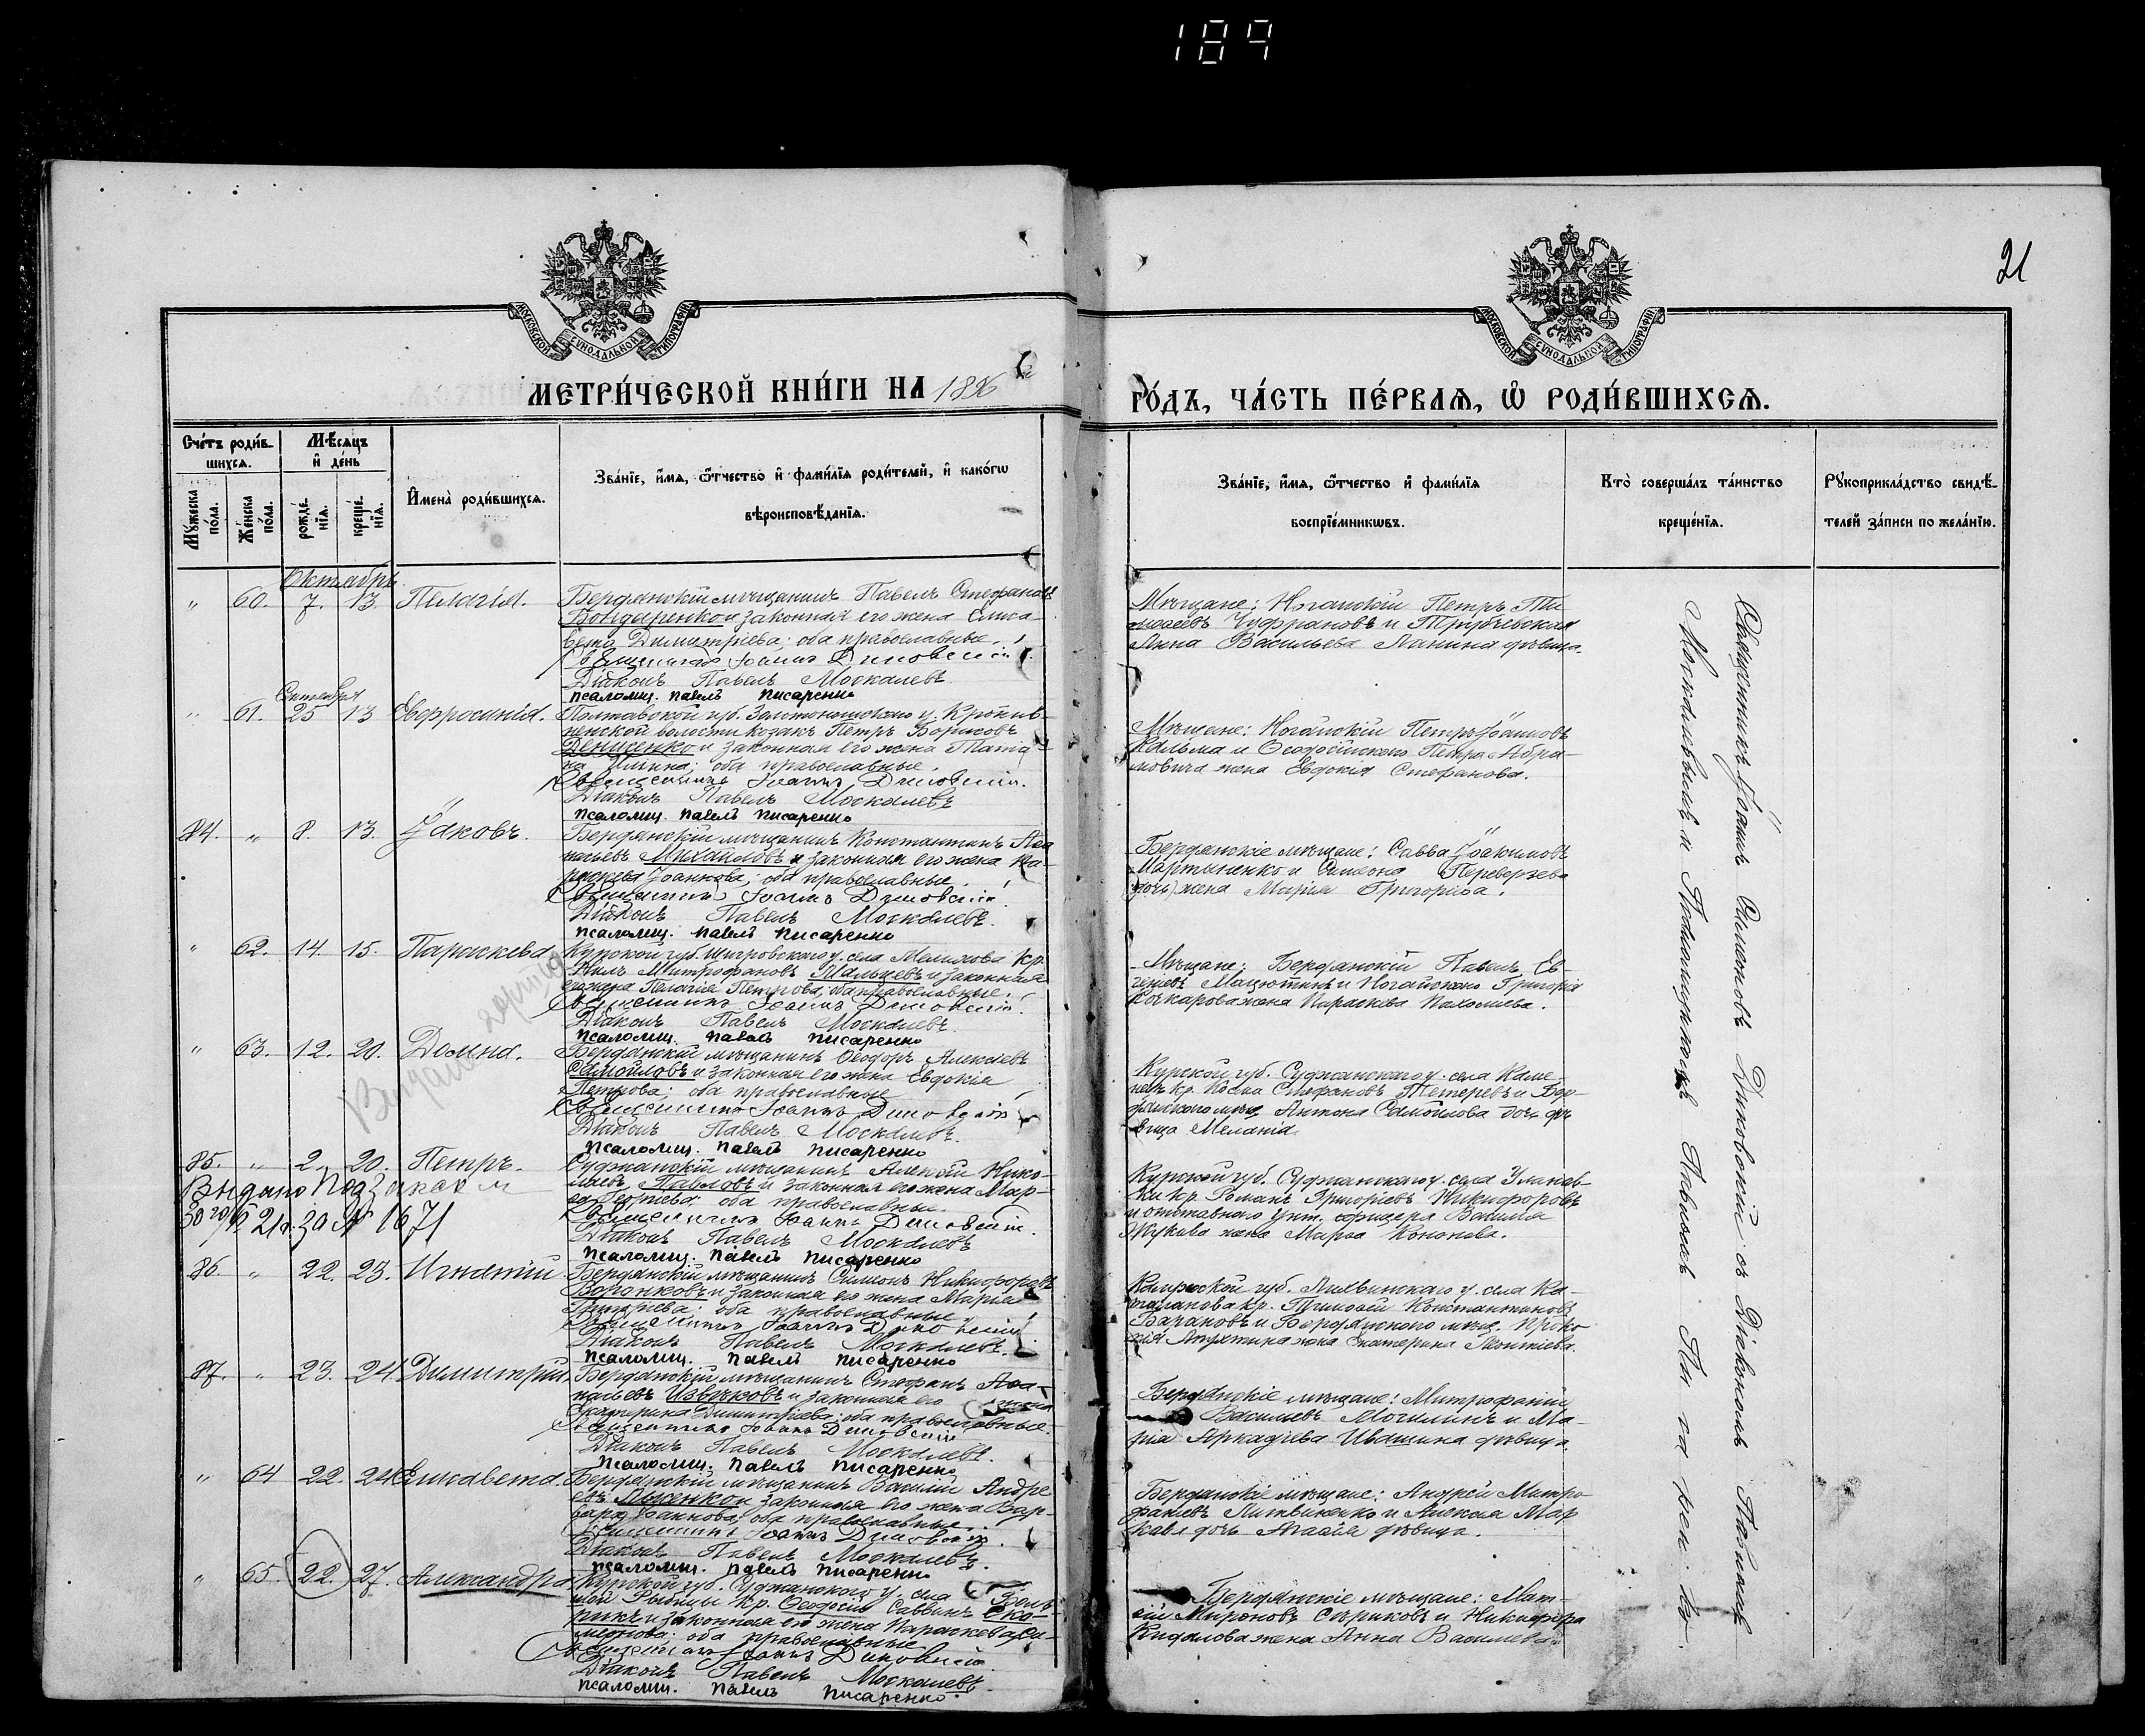 189
21
МОСКОВСКОЙ СѴНОДАЛЬНОЙ ТИПОГРАФІИ
МОСКОВСКОЙ СѴНОДАЛЬНОЙ ТИПОГРАФІИ
МЕТРИ́ЧЕСКОЙ КНИ́ГИ НА 1896
ГО́ДЪ, ЧА́СТЬ ПЕ́РВАѦ, Ѡ҆ РОДИ́ВШИХСѦ.
Сче́тъ роди́в-
шихсѧ.
Мꙋ́жеска по́ла.
Же́нска по́ла.
Мѣ́сѧцъ
и҆ де́нь
рожде́-
нїѧ.
креще́-
нїѧ.
И҆мена̀ роди́вшихсѧ.
Зва́нїе, и҆́мѧ, ѻ҆́тчество и҆ фами́лїѧ роди́телей, и҆ како́гѡ
вѣроисповѣ́данїѧ.
Зва́нїе, и҆́мѧ, ѻ҆́тчество и҆ фами́лїѧ
воспрїе́мникѡвъ.
Кто̀ соверша́лъ та́инство
креще́нїѧ.
Рꙋкоприкла́дство свидѣ́-
телей за́писи по жела́нїю.
Октябрь
" 60. 7. 13. Пелагія.
Бердянскій мѣщанинъ Павелъ Стефановъ
Бондаренко и законная его жена Елиса-
вета Димитріева; оба православные.
Священникъ Іоаннъ Диковскій
Діаконъ Павелъ Москалевъ
псаломщ. Павелъ Писаренко
Мѣщане: Ногайскій Петръ Ти-
моѳеевъ и Трубчевская
Анна Васильева Лапина дѣвица.
Сентября
" 61. 25 13 Евфросинія.
Полтавской губ. Золотоношскаго у. Кропив-
ненской волости козакъ Петръ Борисовъ
Денисенко и законная его жена Татіа-
на Ильина; оба православные.
Священникъ Іоаннъ Диковскій.
Діаконъ Павелъ Москалевъ
псаломщ. Павелъ Писаренко
Мѣщане: Ногайскій Петръ Іоанновъ
Кальма и Ѳеодосійскаго Петра Абра-
мовича жена Евдокія Стефанова.
84. " 8. 13. Іаковъ.
Бердянскій мѣщанинъ Константинъ Аѳа-
насьевъ Михайловъ и законная его жена Па-
раскева Іоаннова; оба православные.
Священникъ Іоаннъ Диковскій.
Діаконъ Павелъ Москалевъ.
псаломщ. Павелъ Писаренко
Бердянскіе мѣщане: Савва Іоакимовъ
Мартыненко и Симеона Переверзева
жена Марія Григорьева.
" 62. 14. 15. Параскева
Курской губ. Щигровскаго у. села Мелихова кр.
Нилъ Митрофановъ Мальцевъ и законная
его жена Пелагія Петрова; оба православные.
Священникъ Іоаннъ Диковскій.
Діаконъ Павелъ Москалевъ.
псаломщ. Павелъ Писаренко
Мѣщане: Бердянскій Павелъ Ев-
Мацютинъ и Ногайскаго Григорія
Кочкарова жена Параскева Пахомиева.
" 63. 12. 20. Домна.
Бердянскій мѣщанинъ Ѳеодоръ Алексѣевъ
Самойловъ и законная его жена Евдокія
Петрова; оба православные
Священникъ Іоаннъ Диковскій
Діаконъ Павелъ Москалевъ.
псаломщ. Павелъ Писаренко
Курской губ. Суджанскаго у. села Каме-
нецъ кр. Косма Стефановъ Тетеревъ и Бер-
дянскаго мѣщ. Антона Самойлова дочь дѣ-
вица Меланія
85. " 2. 20. Петръ.
Выдано под
за № 1671
Суджанскій мѣщанинъ Алексѣй Нико-
лаевъ Павловъ и законная его жена Мар-
ѳа Георгіева; оба православные.
Священникъ Іоаннъ Диковскій.
Діаконъ Павелъ Москалевъ
псаломщ. Павелъ Писаренко
Курской губ. Суджанскаго у. села Уланов-
ки кр. Романъ Григоріевъ Никифоровъ
и отставнаго унт. офицера Василія
Жукова жена Марѳа Кононова.
86. " 22. 23. Игнатій
Бердянскій мѣщанинъ Симеонъ Никифоровъ
Воронковъ и законная его жена Марія
Григоріева; оба православные.
Священникъ Іоаннъ Диковскій
Діаконъ Павелъ Москалевъ.
псаломщ. Павелъ Писаренко
Калужской губ. Лихвинскаго у. села Ка-
кр. Тимоѳей Константиновъ
Бачановъ и Бердянскаго мѣщ. Проко-
пія жена Екатерина Леонтіева.
87. " 23. 24. Димитрій.
Бердянскій мѣщанинъ Стефанъ Аѳа-
насьевъ Извѣковъ и законная его жена
Екатерина Димитріева; оба православные.
Священникъ Іоаннъ Диковскій
Діаконъ Павелъ Москалевъ.
псаломщ. Павелъ Писаренко
Бердянскіе мѣщане: Митрофаній
Васильевъ Могилинъ и Ма-
рія Аркадіева Ивашина дѣвица
" 64 22. 24 Елисавета.
Бердянскій мѣщанинъ Василій Андре-
евъ Лысенко и законная его жена Вар-
вара Іоаннова; оба православные.
Священникъ Іоаннъ Диковскій.
Діаконъ Павелъ Москалевъ.
псаломщ. Павелъ Писаренко
Бердянскіе мѣщане: Андрей Митро-
фаніевъ Литвиненко и Алексія Мар-
дочь Агаѳія дѣвица.
" 65. 22. 27. Александра
Курской губ. Суджанскаго у. села Боль-
шой Рыбицы кр. Ѳеодосій Саввинъ Ско-
рикъ и законная его жена Параскева Си-
меонова; оба православные
Священникъ Іоаннъ Диковскій.
Діаконъ Павелъ Москалевъ.
псаломщ. Павелъ Писаренко.
Бердянскіе мѣщане: Мат-
ѳій Мироновъ Стриковъ и Никифора
Кидалова жена Анна Васильева.
Священникъ Іоаннъ Симеоновъ Диковскій съ Діакономъ Павломъ
Москалевымъ и Псаломщикомъ Павломъ Писаренко.